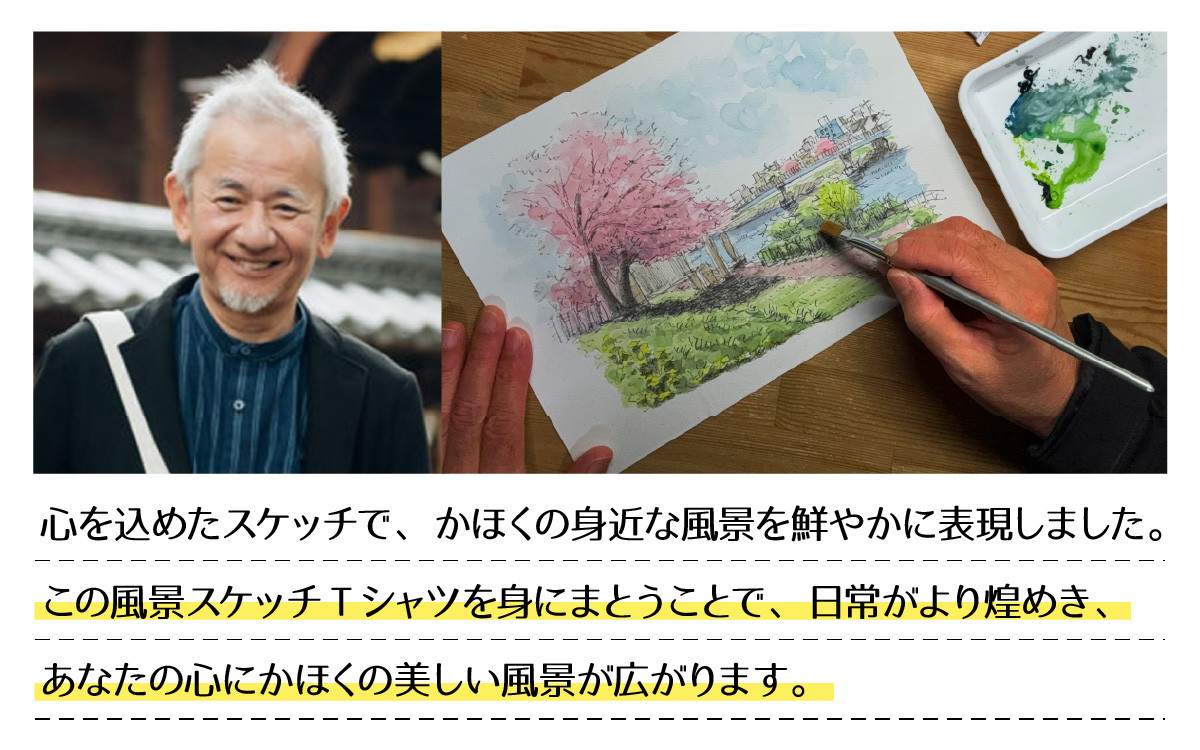 心を込めたスケッチで、かほくの身近な風景を鮮やかに表現しました。
この風景スケッチTシャツを身にまとうことで、日常がより煌めき、
あなたの心にかほくの美しい風景が広がります。